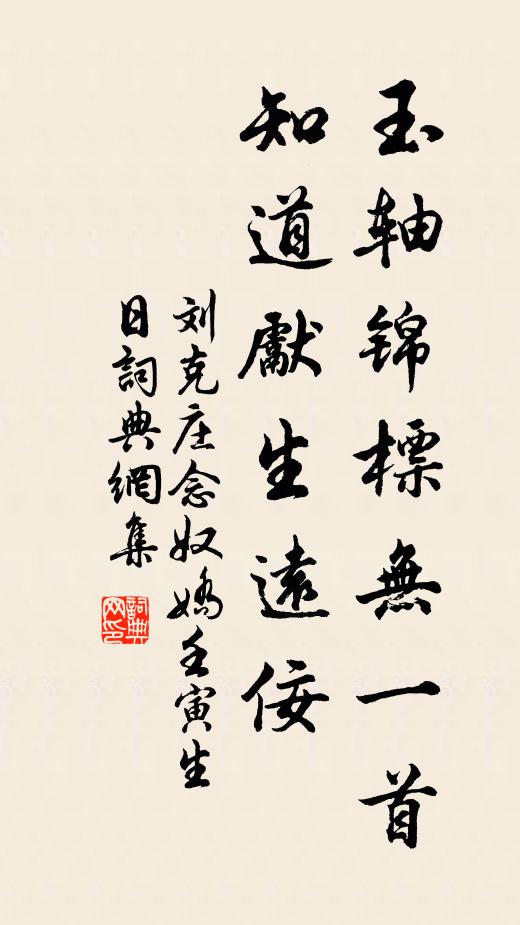 玉軸锦標無一首
知道獻生遠佞
刘克庄念奴嬌壬寅生
日詞典網集
詞典
网印